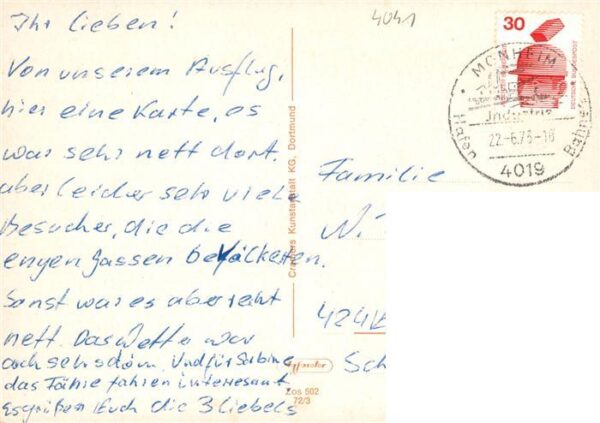 4041
Ihr lieben!
Von unserem Ausflug,
hier eine Karte, es
war sehr nett dort.
aber leider sehr viele
Besucher, die die
engen Gassen bevölkerten.
Sonst war es aber recht
nett. Das Wetter war
auch sehr schön. Und für Sabine
das Fähre fahren interessant
Es grüßen Euch die 3 Liebels
Cramers Kunstanstalt KG, Dortmund
Zos 602
72/3
30
MONHEIM
Industrie
Hafen
Bahnen
22.-6.76-18
4019
Familie
N.
424
Sch